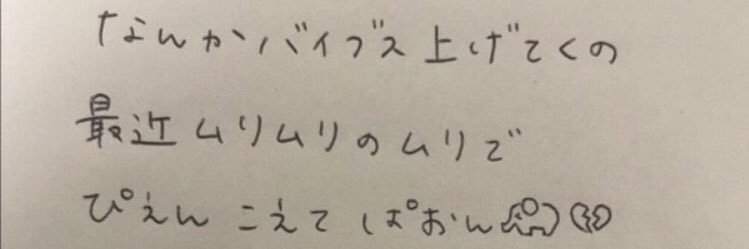 なんかバイブス上げてくの
最近ムリムリのムリで
ぴえんこえてぱおん